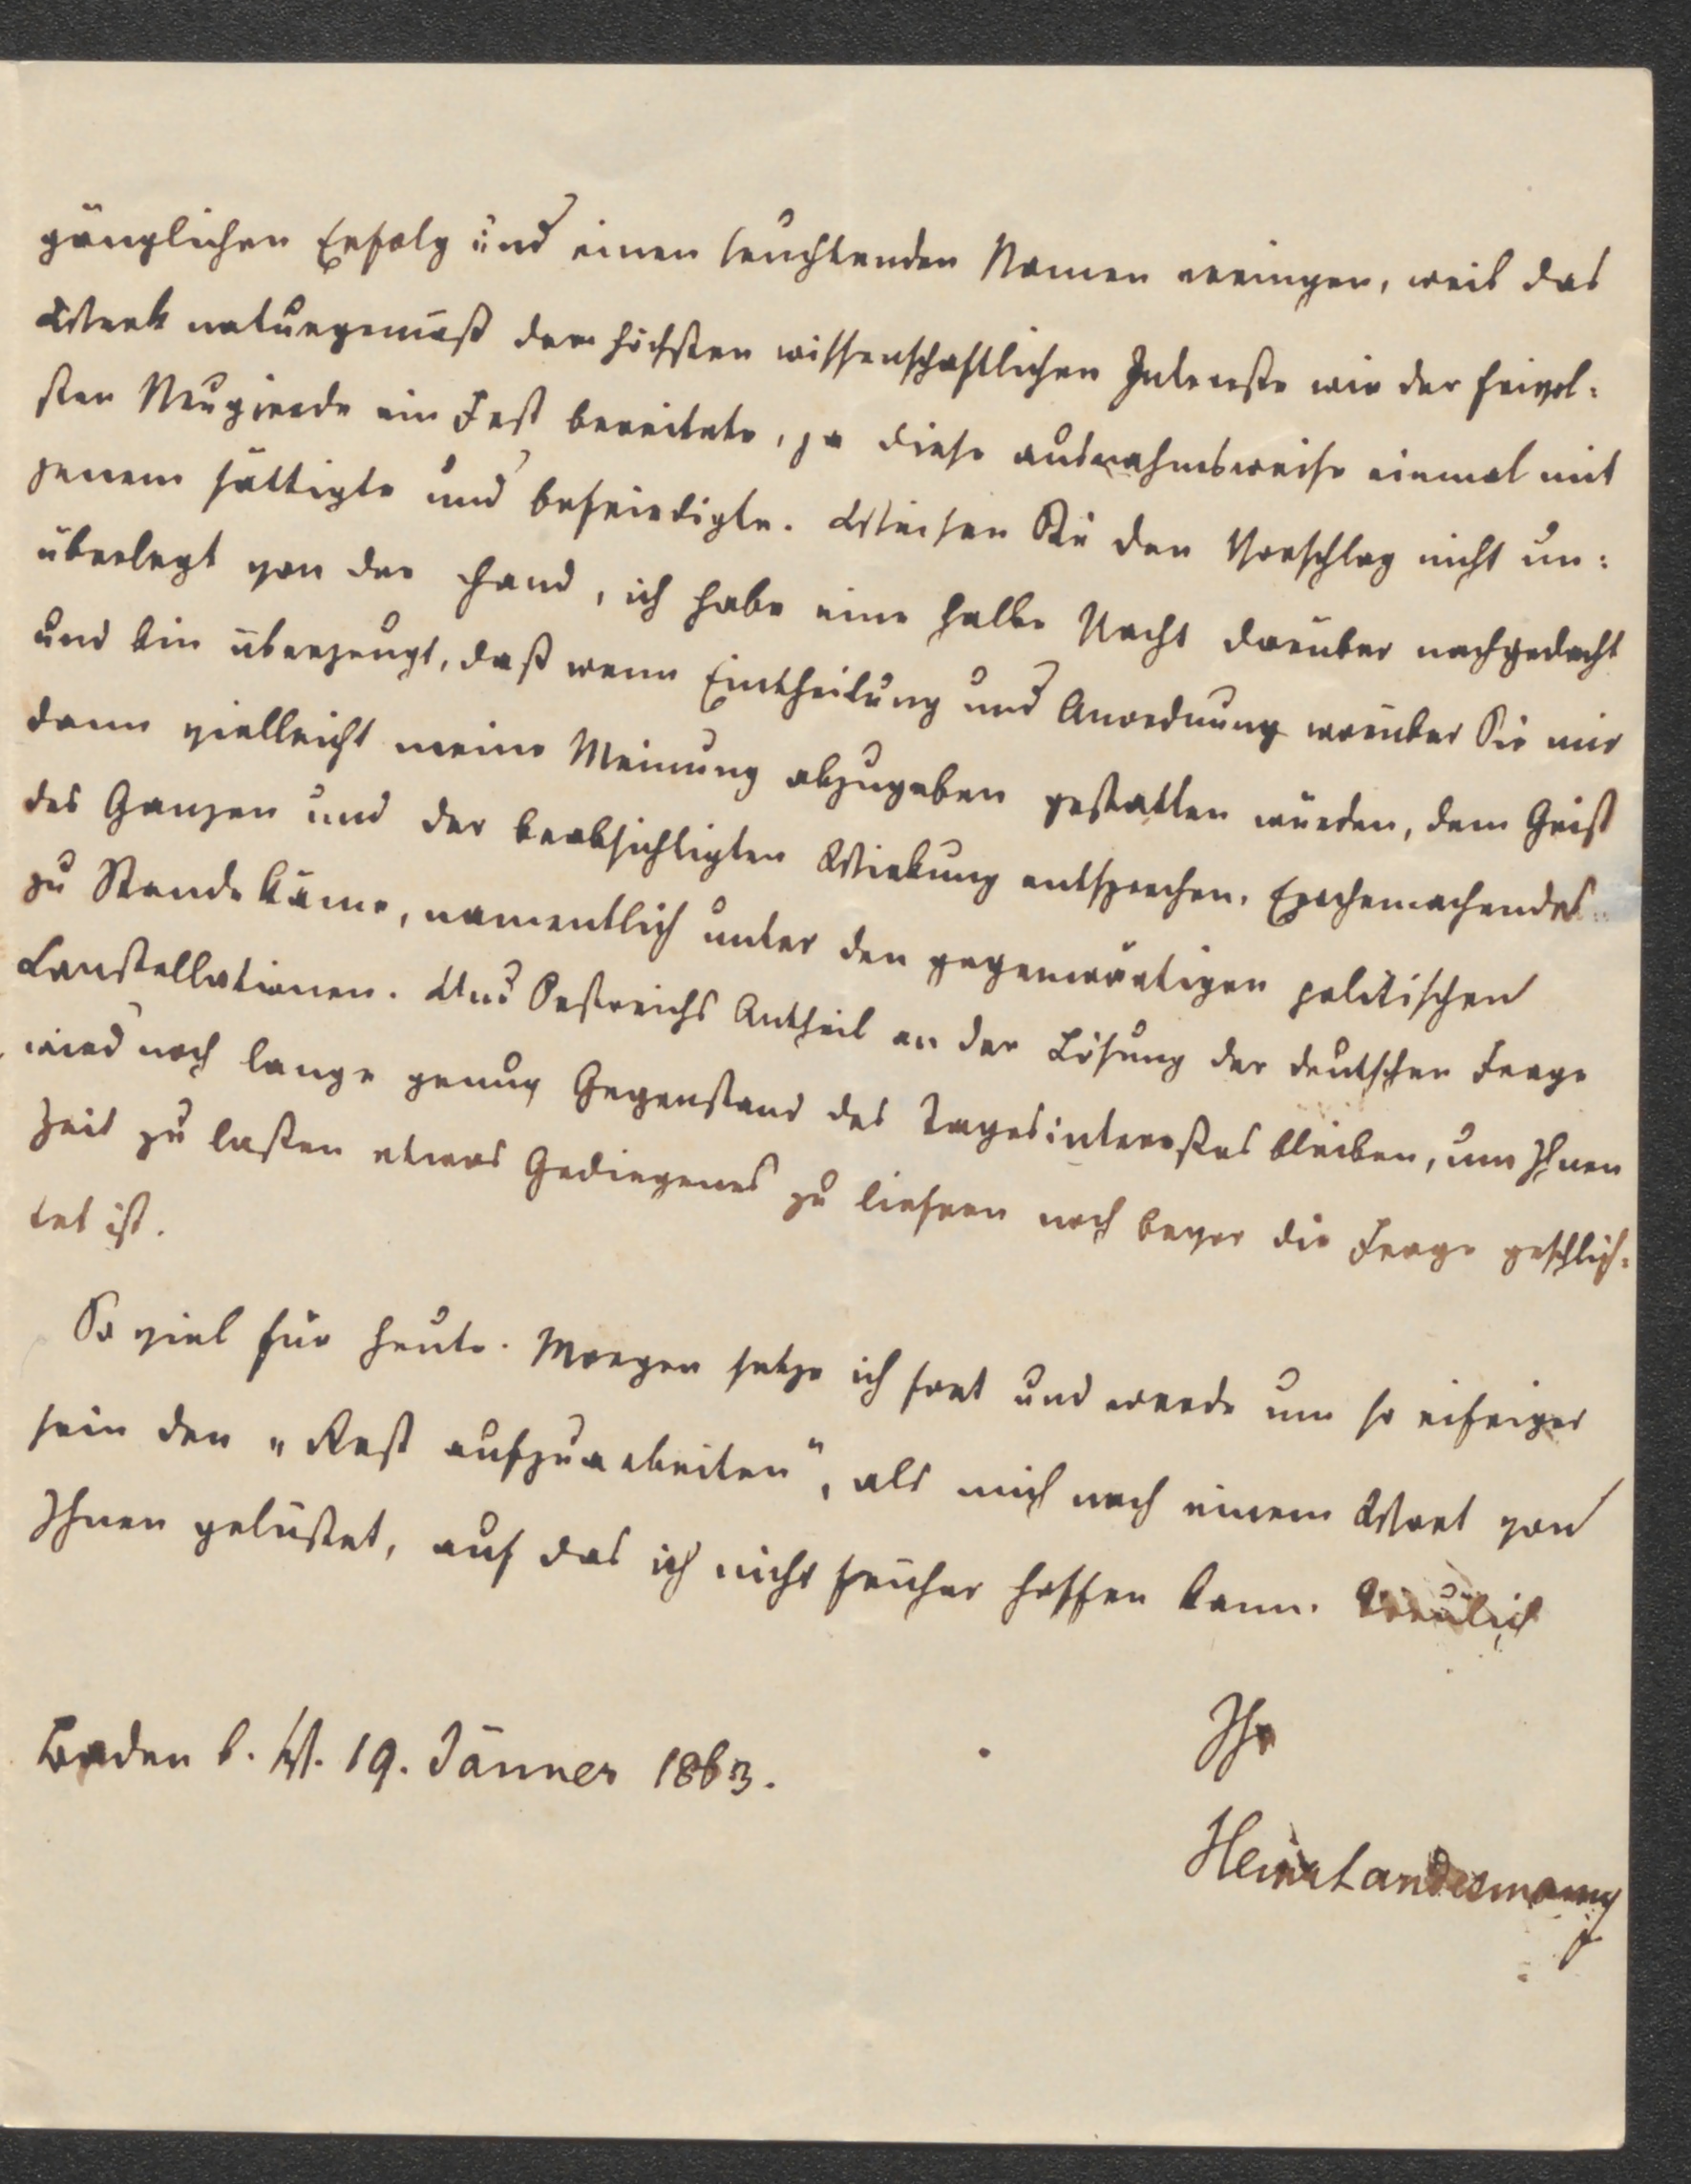 gänglichen Erfolg und einen leuchtenden Namen erringen, weil das
Werk naturgemäß dem höchsten wissenschaftlichen Intereße wie der frivol-
sten Neugierde ein Fest bereitete, ja diese ausnahmsweise einmal mit
jenem sättigte und befriedigte. Weisen Sie den Vorschlag nicht un-
überlegt von der Hand, ich habe eine halbe Nacht darüber nachgedacht
und bin überzeugt, daß wenn Eintheilung und Anordnung worüber Sie mir
dann vielleicht meine Meinung abzugeben gestatten würden, dem Geist
des Ganzen und der beabsichtigten Wirkung entsprechen, Epochemachendes
zu Stande käme, namentlich unter den gegenwärtigen politischen
Constellationen. Und Oestreichs Antheil an der Lösung der deutschen Frage
wird noch lange genug Gegenstand des Tagesintereßes bleiben, um Ihnen
Zeit zu laßen etwas Gediegenes zu liefern noch bevor die Frage geschlich-
tet ist.
So viel für heute. Morgen setze ich fort und werde um so eifriger
sein den „Rest aufzuarbeiten", als mich nach einem Wort von
Ihnen gelüstet, auf das ich nicht früher hoffen kann. Treulich
Ihr
Baden b. W. 19. Jänner 1863.
Heinr Landesmann